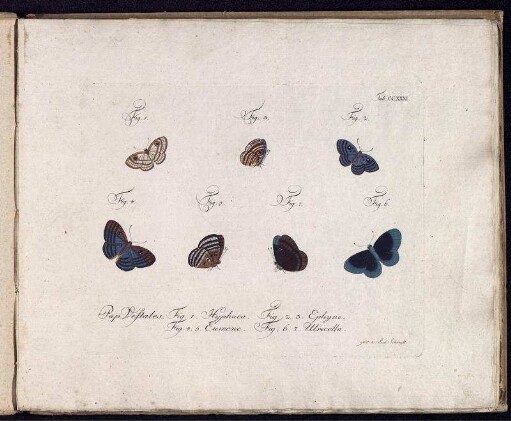 Tab. CCXXXI.
Fig. 1. Fig. 3. Fig. 2.
Fig. 4. Fig. 5. Fig. 7. Fig. 6.
Pap. Vestales. Fig. 1. Hyphaea. Fig. 2. 3. Ephyne.
Fig. 4. 5. Eumene. Fig. 6. 7. Ulricella.